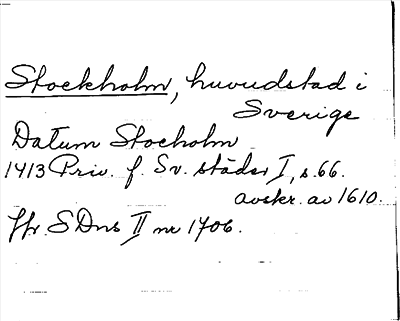 Stockholm, huvudstad i
Sverige
Datum Stocholm
1413 Priv. f. Sv. städer I, s. 66.
avskr. av 1610.
Jfr. SDns II nr 1706.